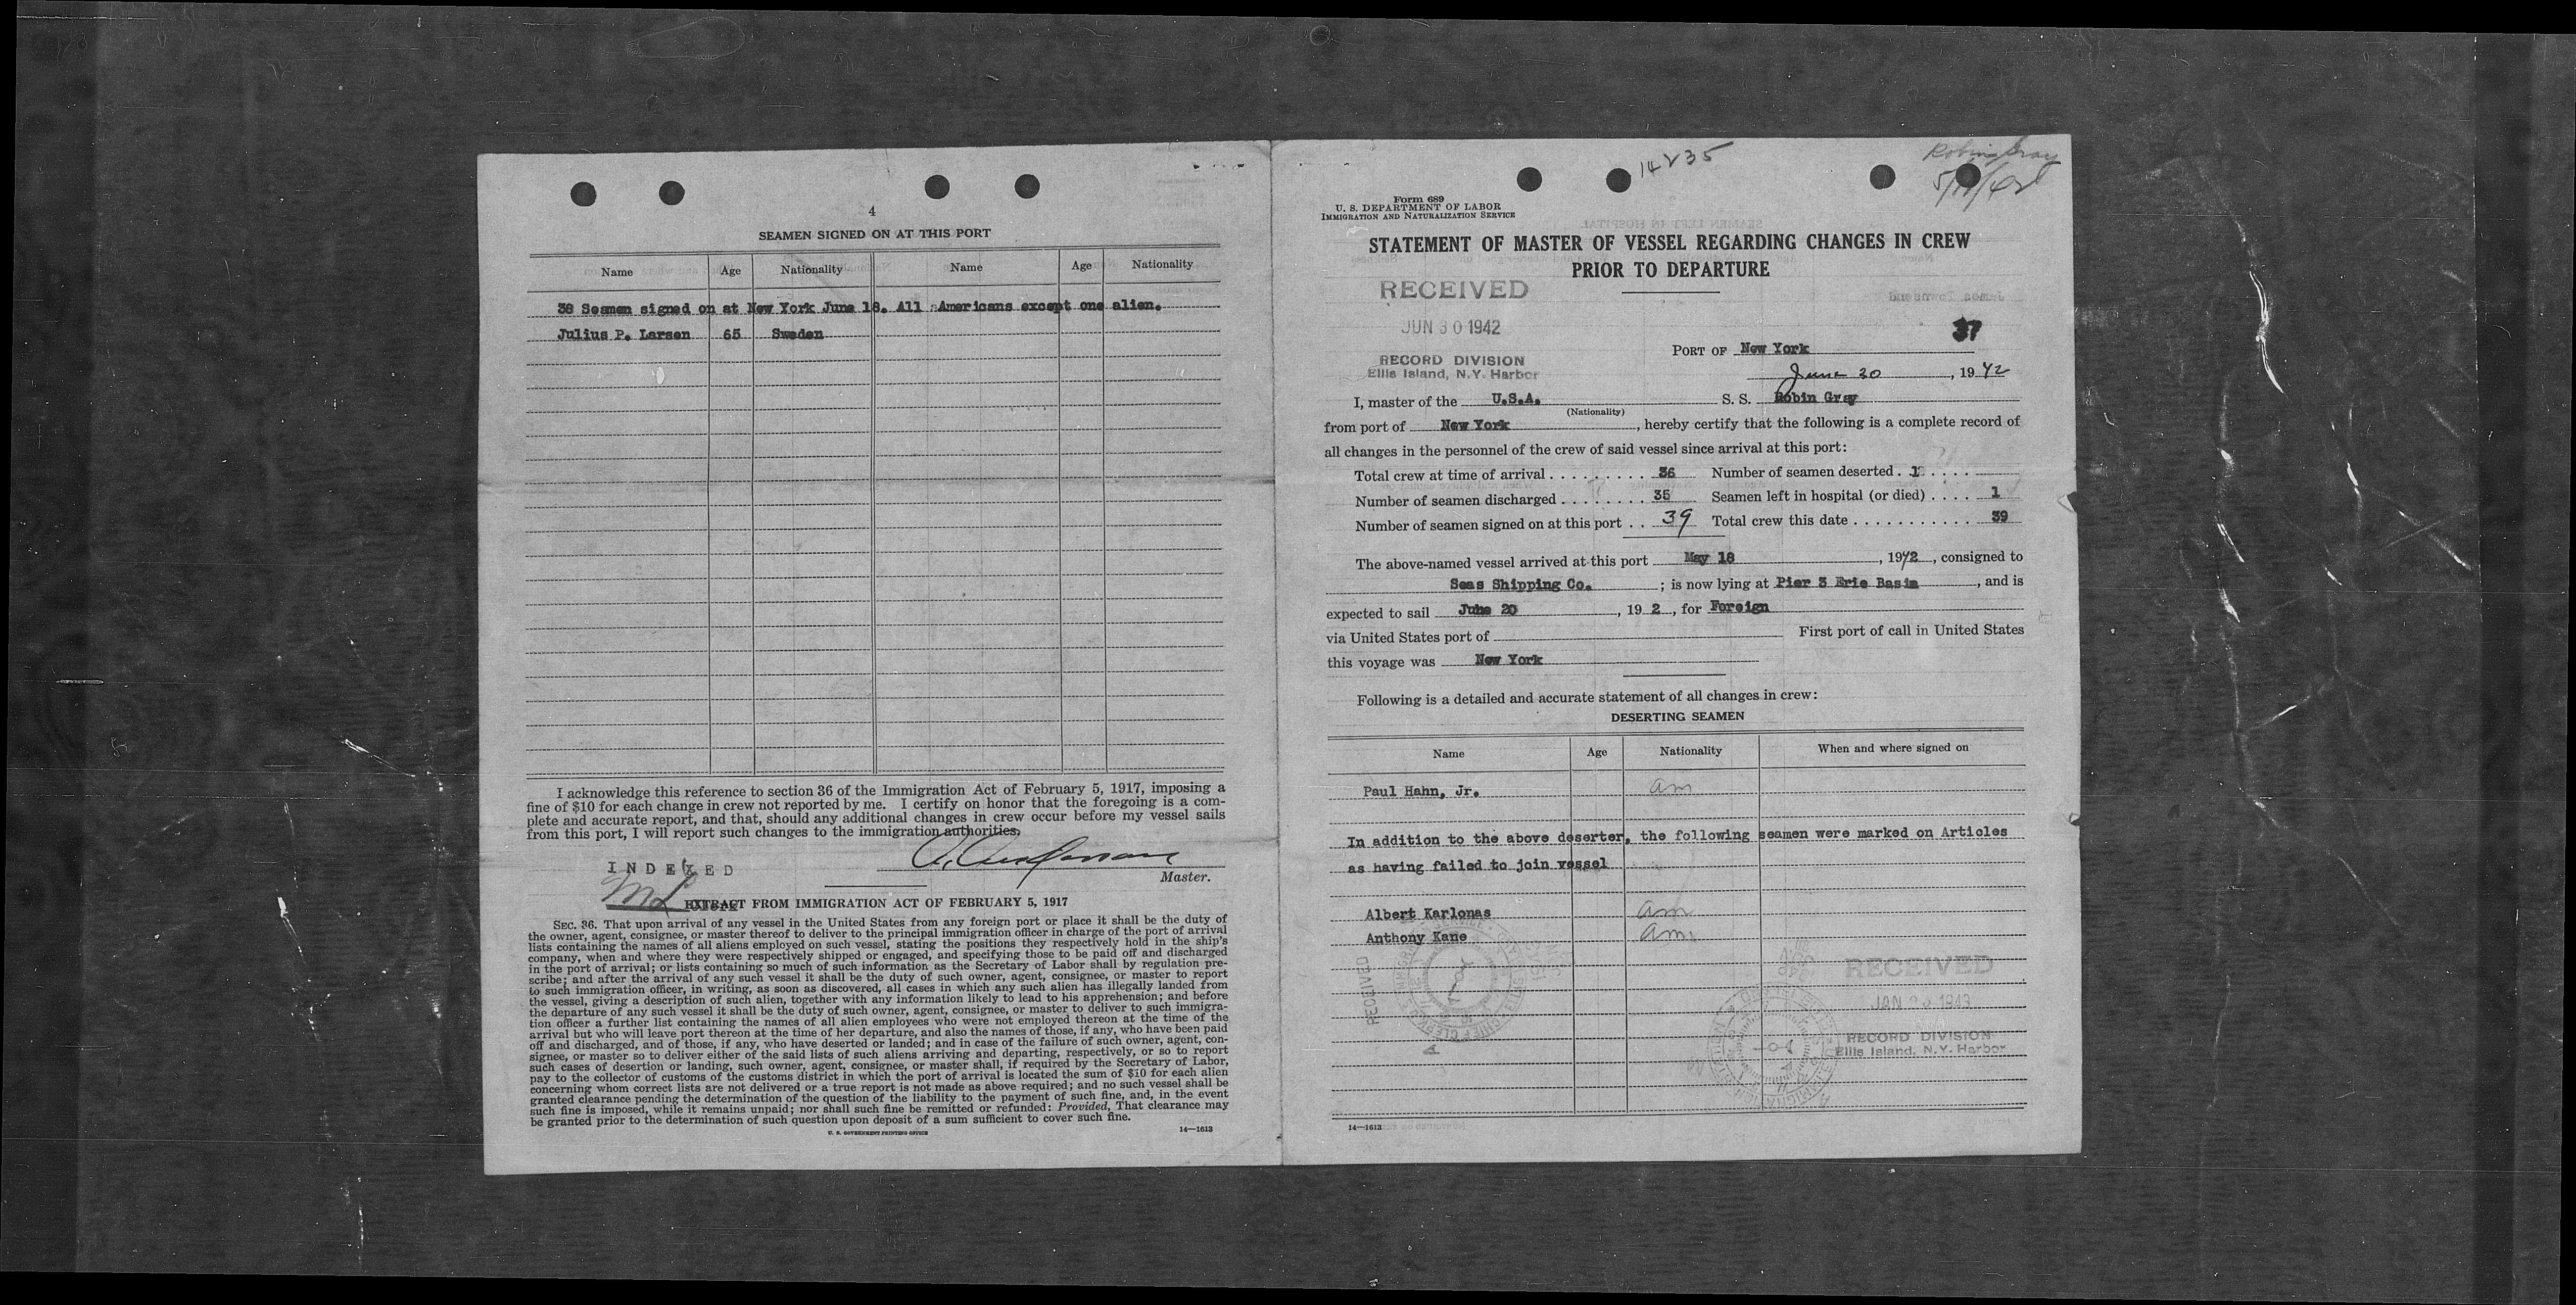 4
SEAMEN SIGNED ON AT THIS PORT
Name Age Nationality Name Age Nationality
38 Seamen signed on at New York June 18. All Americans except one alien.
Julius P. Larsen 65 Sweden
I acknowledge this reference to section 36 of the Immigration Act of February 5, 1917, imposing a
fine of $10 for each change in crew not reported by me. I certify on honor that the foregoing is a com-
plete and accurate report, and that, should any additional changes in crew occur before my vessel sails
from this port, I will report such changes to the immigration authorities.
INDEXED
Master.
EXTRACT FROM IMMIGRATION ACT OF FEBRUARY 5, 1917
SEC. 36. That upon arrival of any vessel in the United States from any foreign port or place it shall be the duty of
the owner, agent, consignee, or master thereof to deliver to the principal immigration officer in charge of the port of arrival
lists containing the names of all aliens employed on such vessel, stating the positions they respectively hold in the ship's
company, when and where they were respectively shipped or engaged, and specifying those to be paid off and discharged
in the port of arrival; or lists containing so much of such information as the Secretary of Labor shall by regulation pre-
scribe; and after the arrival of any such vessel it shall be the duty of such owner, agent, consignee, or master to report
to such immigration officer, in writing, as soon as discovered, all cases in which any such alien has illegally landed from
the vessel, giving a description of such alien, together with any information likely to lead to his apprehension; and before
the departure of any such vessel it shall be the duty of such owner, agent, consignee, or master to deliver to such immigra-
tion officer a further list containing the names of all alien employees who were not employed thereon at the time of the
arrival but who will leave port thereon at the time of her departure, and also the names of those, if any, who have been paid
off and discharged, and of those, if any, who have deserted or landed; and in case of the failure of such owner, agent, con-
signee, or master so to deliver either of the said lists of such aliens arriving and departing, respectively, or so to report
such cases of desertion or landing, such owner, agent, consignee, or master shall, if required by the Secretary of Labor,
pay to the collector of customs of the customs district in which the port of arrival is located the sum of $10 for each alien
concerning whom correct lists are not delivered or a true report is not made as above required; and no such vessel shall be
granted clearance pending the determination of the question of the liability to the payment of such fine, and, in the event
such fine is imposed, while it remains unpaid; nor shall such fine be remitted or refunded: Provided, That clearance may
be granted prior to the determination of such question upon deposit of a sum sufficient to cover such fine.
U. S. GOVERNMENT PRINTING OFFICE 14—1613
Robin Gray
Form 689
U. S. DEPARTMENT OF LABOR
IMMIGRATION AND NATURALIZATION SERVICE
STATEMENT OF MASTER OF VESSEL REGARDING CHANGES IN CREW
PRIOR TO DEPARTURE
RECEIVED
JUN 30 1942
RECORD DIVISION
Ellis Island, N.Y. Harbor
37
PORT OF New York
June 20, 1942
I, master of the U.S.A. S. S. Robin Gray
(Nationality)
from port of New York, hereby certify that the following is a complete record of
all changes in the personnel of the crew of said vessel since arrival at this port:
Total crew at time of arrival . . . . . . . . . 36 Number of seamen deserted . 1 . . . .
Number of seamen discharged . . . . . . . . 35 Seamen left in hospital (or died) . . . . 1
Number of seamen signed on at this port . . 39 Total crew this date . . . . . . . . . . . . 39
The above-named vessel arrived at this port May 18, 1942, consigned to
Seas Shipping Co. ; is now lying at Pier 3 Erie Basin, and is
expected to sail June 20, 19 2, for Foreign
via United States port of First port of call in United States
this voyage was New York
Following is a detailed and accurate statement of all changes in crew:
DESERTING SEAMEN
Name Age Nationality When and where signed on
Paul Hahn, Jr. am
In addition to the above deserter, the following seamen were marked on Articles
as having failed to join vessel
Albert Karlonas am
Anthony Kane am.
RECEIVED
RECEIVED
JAN 1943
RECORD DIVISION
Ellis Island, N.Y. Harbor
14—1613